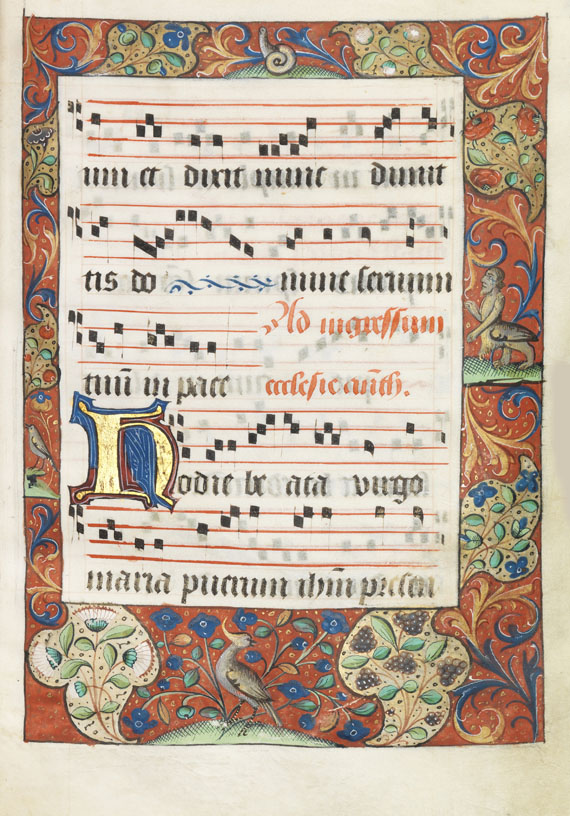 um et dixit nunc dimit
tis do mine servum
Ad ingressum
tuum in pace ecclesie anth.
Hodie be ata virgo
maria puerum ihm presen